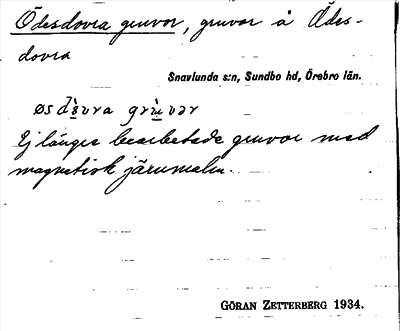 Ödesdovra gruvor, gruvor å Ödes-
dovra
Snavlunda s:n, Sundbo hd, Örebro län.
gruvor
Ej längre bearbetade gruvor med
magnetisk järnmalm.
GÖRAN ZETTERBERG 1934.